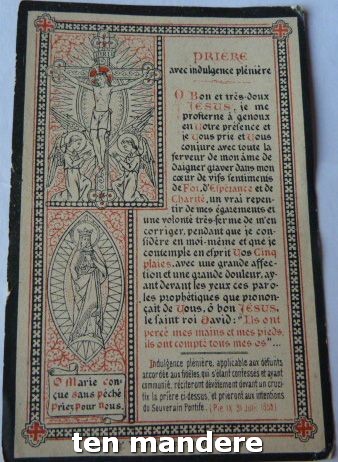 PRIERE
avec indulgence plénière
O Bon et très-doux
JESUS, je me
prosterne à genoux
en Votre présence et
je Vous prie et Vous
conjure avec toute la
ferveur de mon âme de
daigner graver dans mon
cœur de vifs sentiments
de Foi, d'Espérance et de
Charité, un vrai repen-
tir de mes égarements et
une volonté très-ferme de m'en
corriger, pendant que je con-
sidère en moi-même et que je
contemple en esprit Vos Cinq
plaies, avec une grande affec-
tion et une grande douleur, ay-
ant devant les yeux ces paro-
les prophétiques que pronon-
çait de Vous, ô bon JESUS,
le saint roi David: "Ils ont
percé mes mains et mes pieds,
ils ont compté tous mes os"...
Indulgence plénière, applicable aux défunts
accordée aux fidèles, qui s'étant confessés et ayant
communié, réciteront dévotement devant un cruci-
fix la prière ci-dessus, et prieront aux intentions
du Souverain Pontife. (Pie IX 31 Juil. 1858)
O Marie con-
çue sans péché
Priez pour Nous.
ten mandere